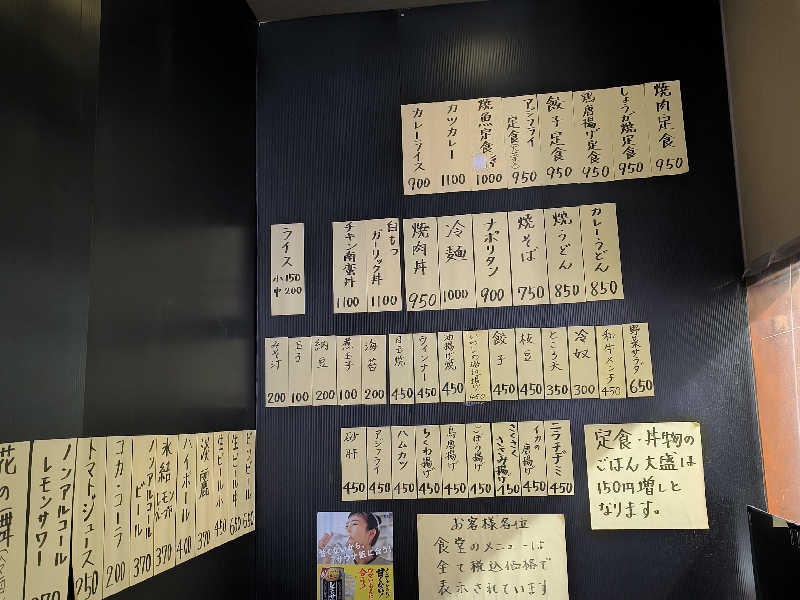 焼肉定食 950
しょうが焼定食 950
鶏唐揚げ定食 950
餃子定食 950
アジフライ定食 950
焼魚定食 1000
カツカレー 1100
カレーライス 900
カレーうどん 850
焼うどん 850
焼そば 750
ナポリタン 900
冷麺 1000
焼肉丼 950
白もつガーリック丼 1100
チキン南蛮丼 1100
ライス 小150 中200
野菜サラダ 650
和牛メンチ 450
冷奴 300
ところ天 350
枝豆 450
餃子 450
油揚げ焼 450
ウインナー 450
目玉焼 450
海苔 200
煮玉子 100
納豆 200
玉子 100
みそ汁 200
ニラチヂミ 450
イカの唐揚げ 450
さくさくささみ揚げ 450
ごぼう揚げ 450
鳥唐揚げ 450
ちくわ揚げ 450
ハムカツ 450
アジフライ 450
砂肝 450
定食・丼物の
ごはん大盛は
150円増しと
なります。
お客様各位
食堂のメニューは
全て税込価格で
表示されています
ビンビール
生ビール 中 650
生ビール 小 450
淡麗 370
ハイボール 400
氷結レモン 370
ノンアルコールビール 370
コカ・コーラ 200
トマトジュース 250
ノンアルコールレモンサワー
花の舞